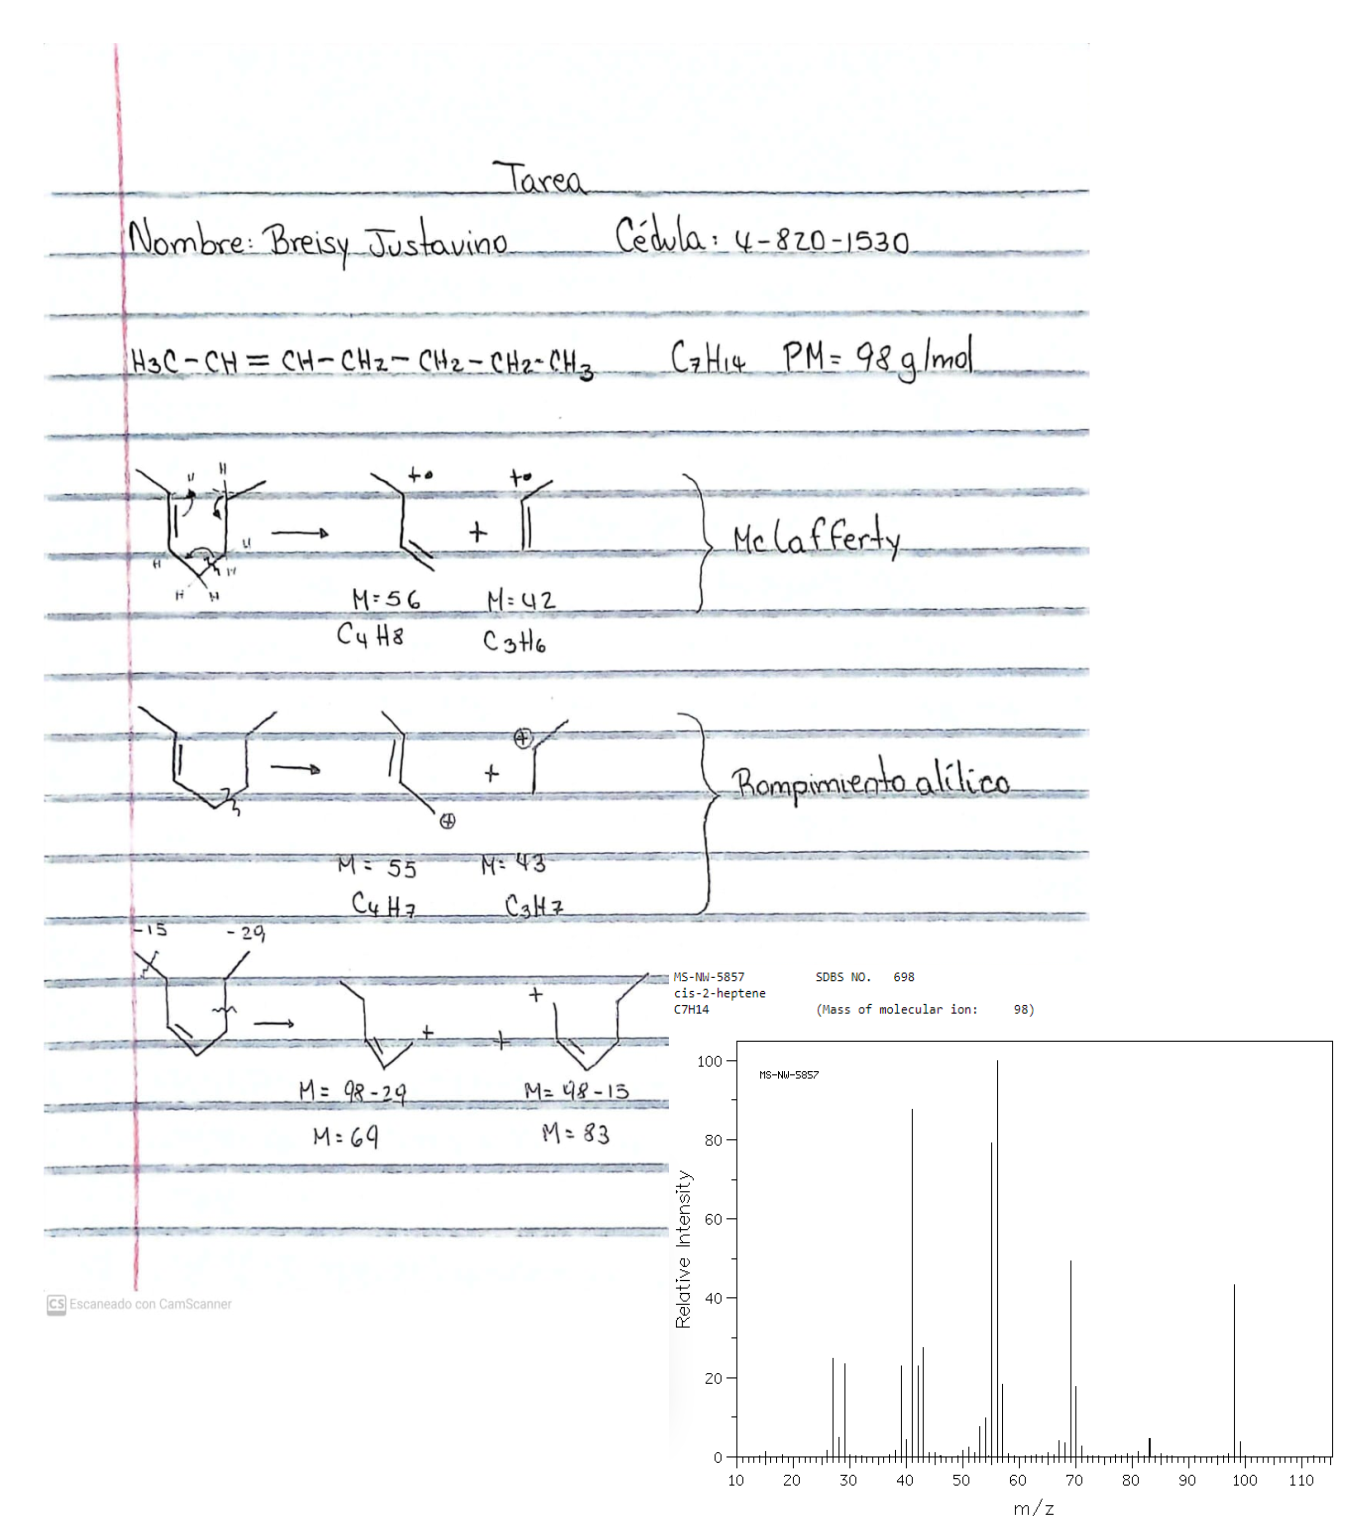 Tarea
Nombre: Breisy Justavino Cédula: 4-820-1530
H3C-CH=CH-CH2-CH2-CH2-CH3 C7H14 PM= 98 g/mol
H H
+• +•
H
H H
H H
+
Mclafferty
M=56 M=42
C4H8 C3H6
⊕
+
⊕
Rompimiento alílico
M= 55 M= 43
C4H7 C3H7
-15 -29
+
+ +
M= 98-29 M= 98-15
M=69 M=83
CS Escaneado con CamScanner
MS-NW-5857 SDBS NO. 698
cis-2-heptene
C7H14 (Mass of molecular ion: 98)
MS-NW-5857
Relative Intensity
100
80
60
40
20
0
10 20 30 40 50 60 70 80 90 100 110
m/z